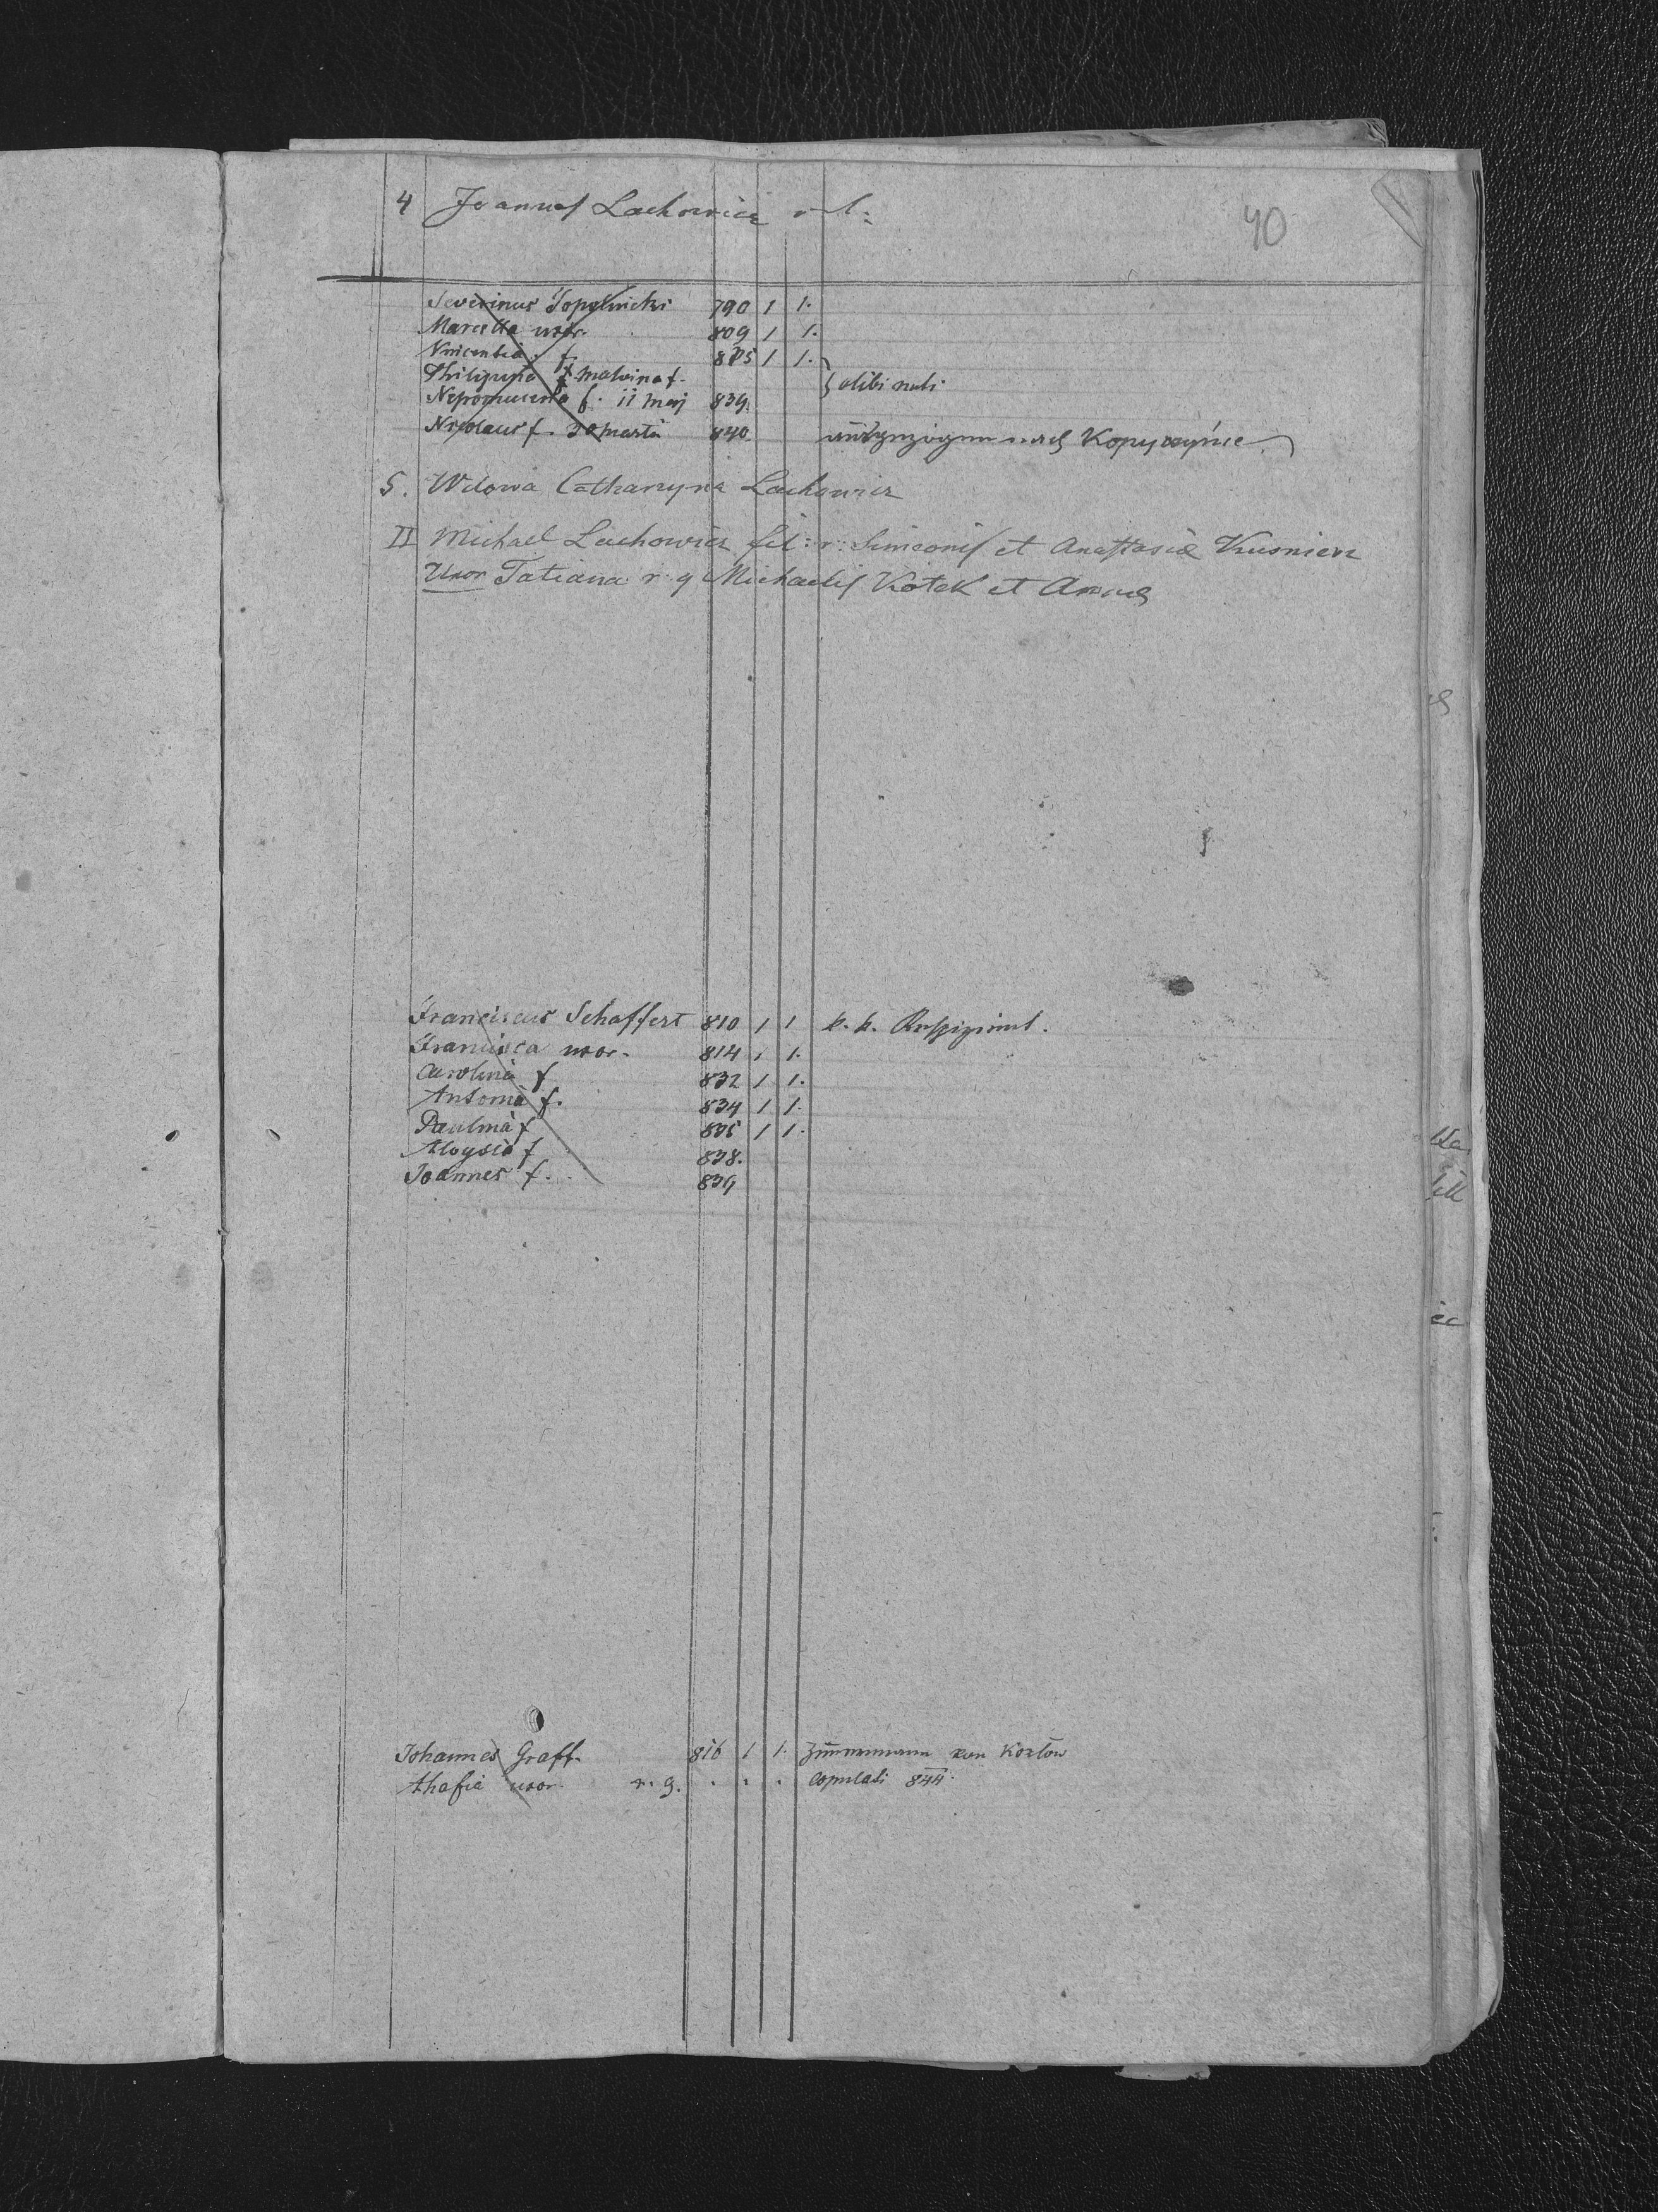 40
4 Joannes Lachowicz r l:
Severinus Topolnicki 790 1 1.
Marcella uxor. 809 1 1.
Vincentia f. 835 1 1.
Philippina f. Malvina f. } alibi nati
Nepomucena f. 11 Maj 839.
Nicolaus f. 30 Martii 840 ausgezogen nach Kopyczyńce.
5. Wdowa Catharzyna Lachowicz
II Michael Lachowicz fil: r: Simeonis et Anastasiæ Kusnierz
Uxor Tatiana r. g Michaelis Kotek et Annae
Franciscus Schaffert 810 1 1 k. k. Respizient.
Francisca uxor. 814 1 1.
Carolina f 832 1 1.
Antonia f. 834 1 1.
Paulina f 835 1 1.
Aloysia f 838.
Joannes f. 839
Johannes Graff. 816 1 1. Zimmermann von Kozłów
Ahafia uxor. r. g. . . . copulati 844.